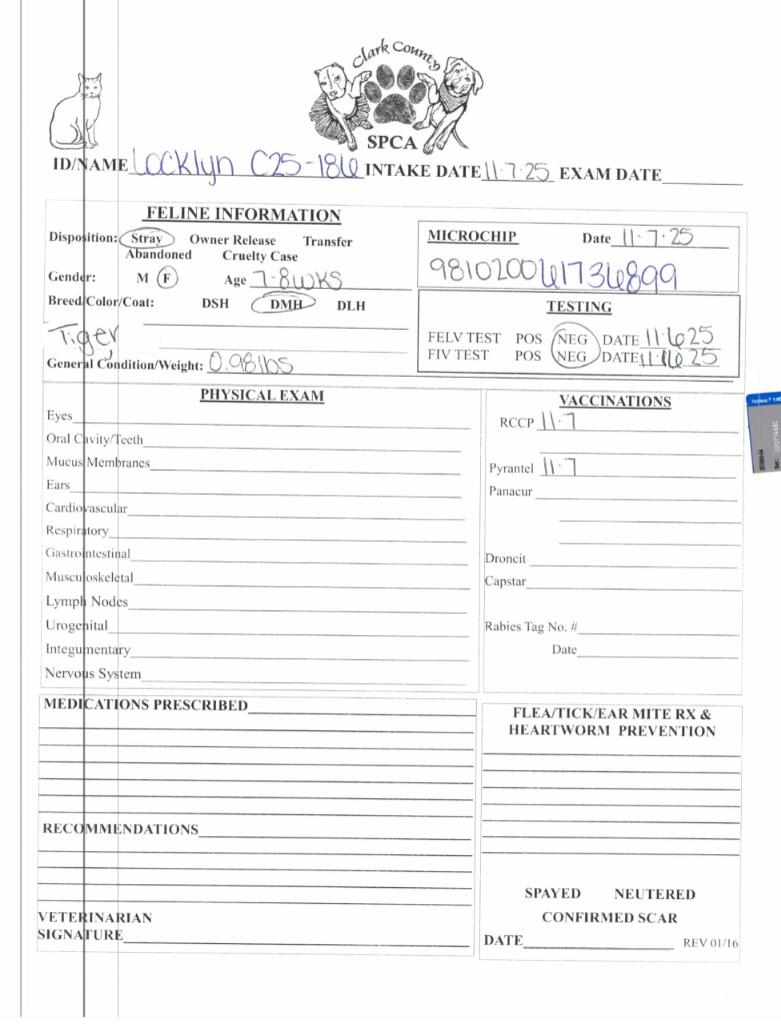 Clark County
SPCA
ID/NAME Locklyn C25-186 INTAKE DATE 11-7-25 EXAM DATE
FELINE INFORMATION
Disposition: Stray Owner Release Transfer
Abandoned Cruelty Case
Gender: M F Age 7-8wks
Breed/Color/Coat: DSH DMH DLH
Tiger
General Condition/Weight: 0.98lbs
MICROCHIP Date 11-7-25
981020061736899
TESTING
FELV TEST POS NEG DATE 11-6-25
FIV TEST POS NEG DATE 11-6-25
PHYSICAL EXAM
Eyes
Oral Cavity/Teeth
Mucus Membranes
Ears
Cardiovascular
Respiratory
Gastrointestinal
Musculoskeletal
Lymph Nodes
Urogenital
Integumentary
Nervous System
VACCINATIONS
RCCP 11-7
Pyrantel 11-7
Panacur
Droncit
Capstar
Rabies Tag No. #
Date
MEDICATIONS PRESCRIBED
RECOMMENDATIONS
VETERINARIAN
SIGNATURE
FLEA/TICK/EAR MITE RX &
HEARTWORM PREVENTION
SPAYED NEUTERED
CONFIRMED SCAR
DATE REV 01/16